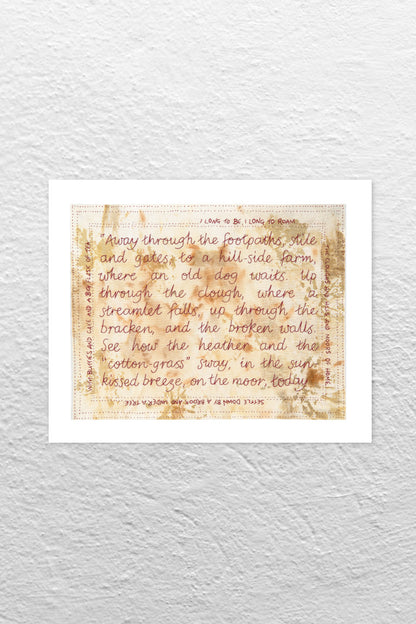 I LONG TO BE, I LONG TO ROAM
"Away through the footpaths, stile
and gates, to a hill-side farm,
where an old dog waits. Up
through the clough, where a
streamlet falls, up through the
bracken, and the broken walls.
See how the heather and the
"cotton-grass" sway, in the sun-
kissed breeze, on the moor, today."
SETTLE DOWN BY A BROOK AND UNDER A TREE
WITH BUTTIES AND CAKE AND A BIG FLASK OF TEA